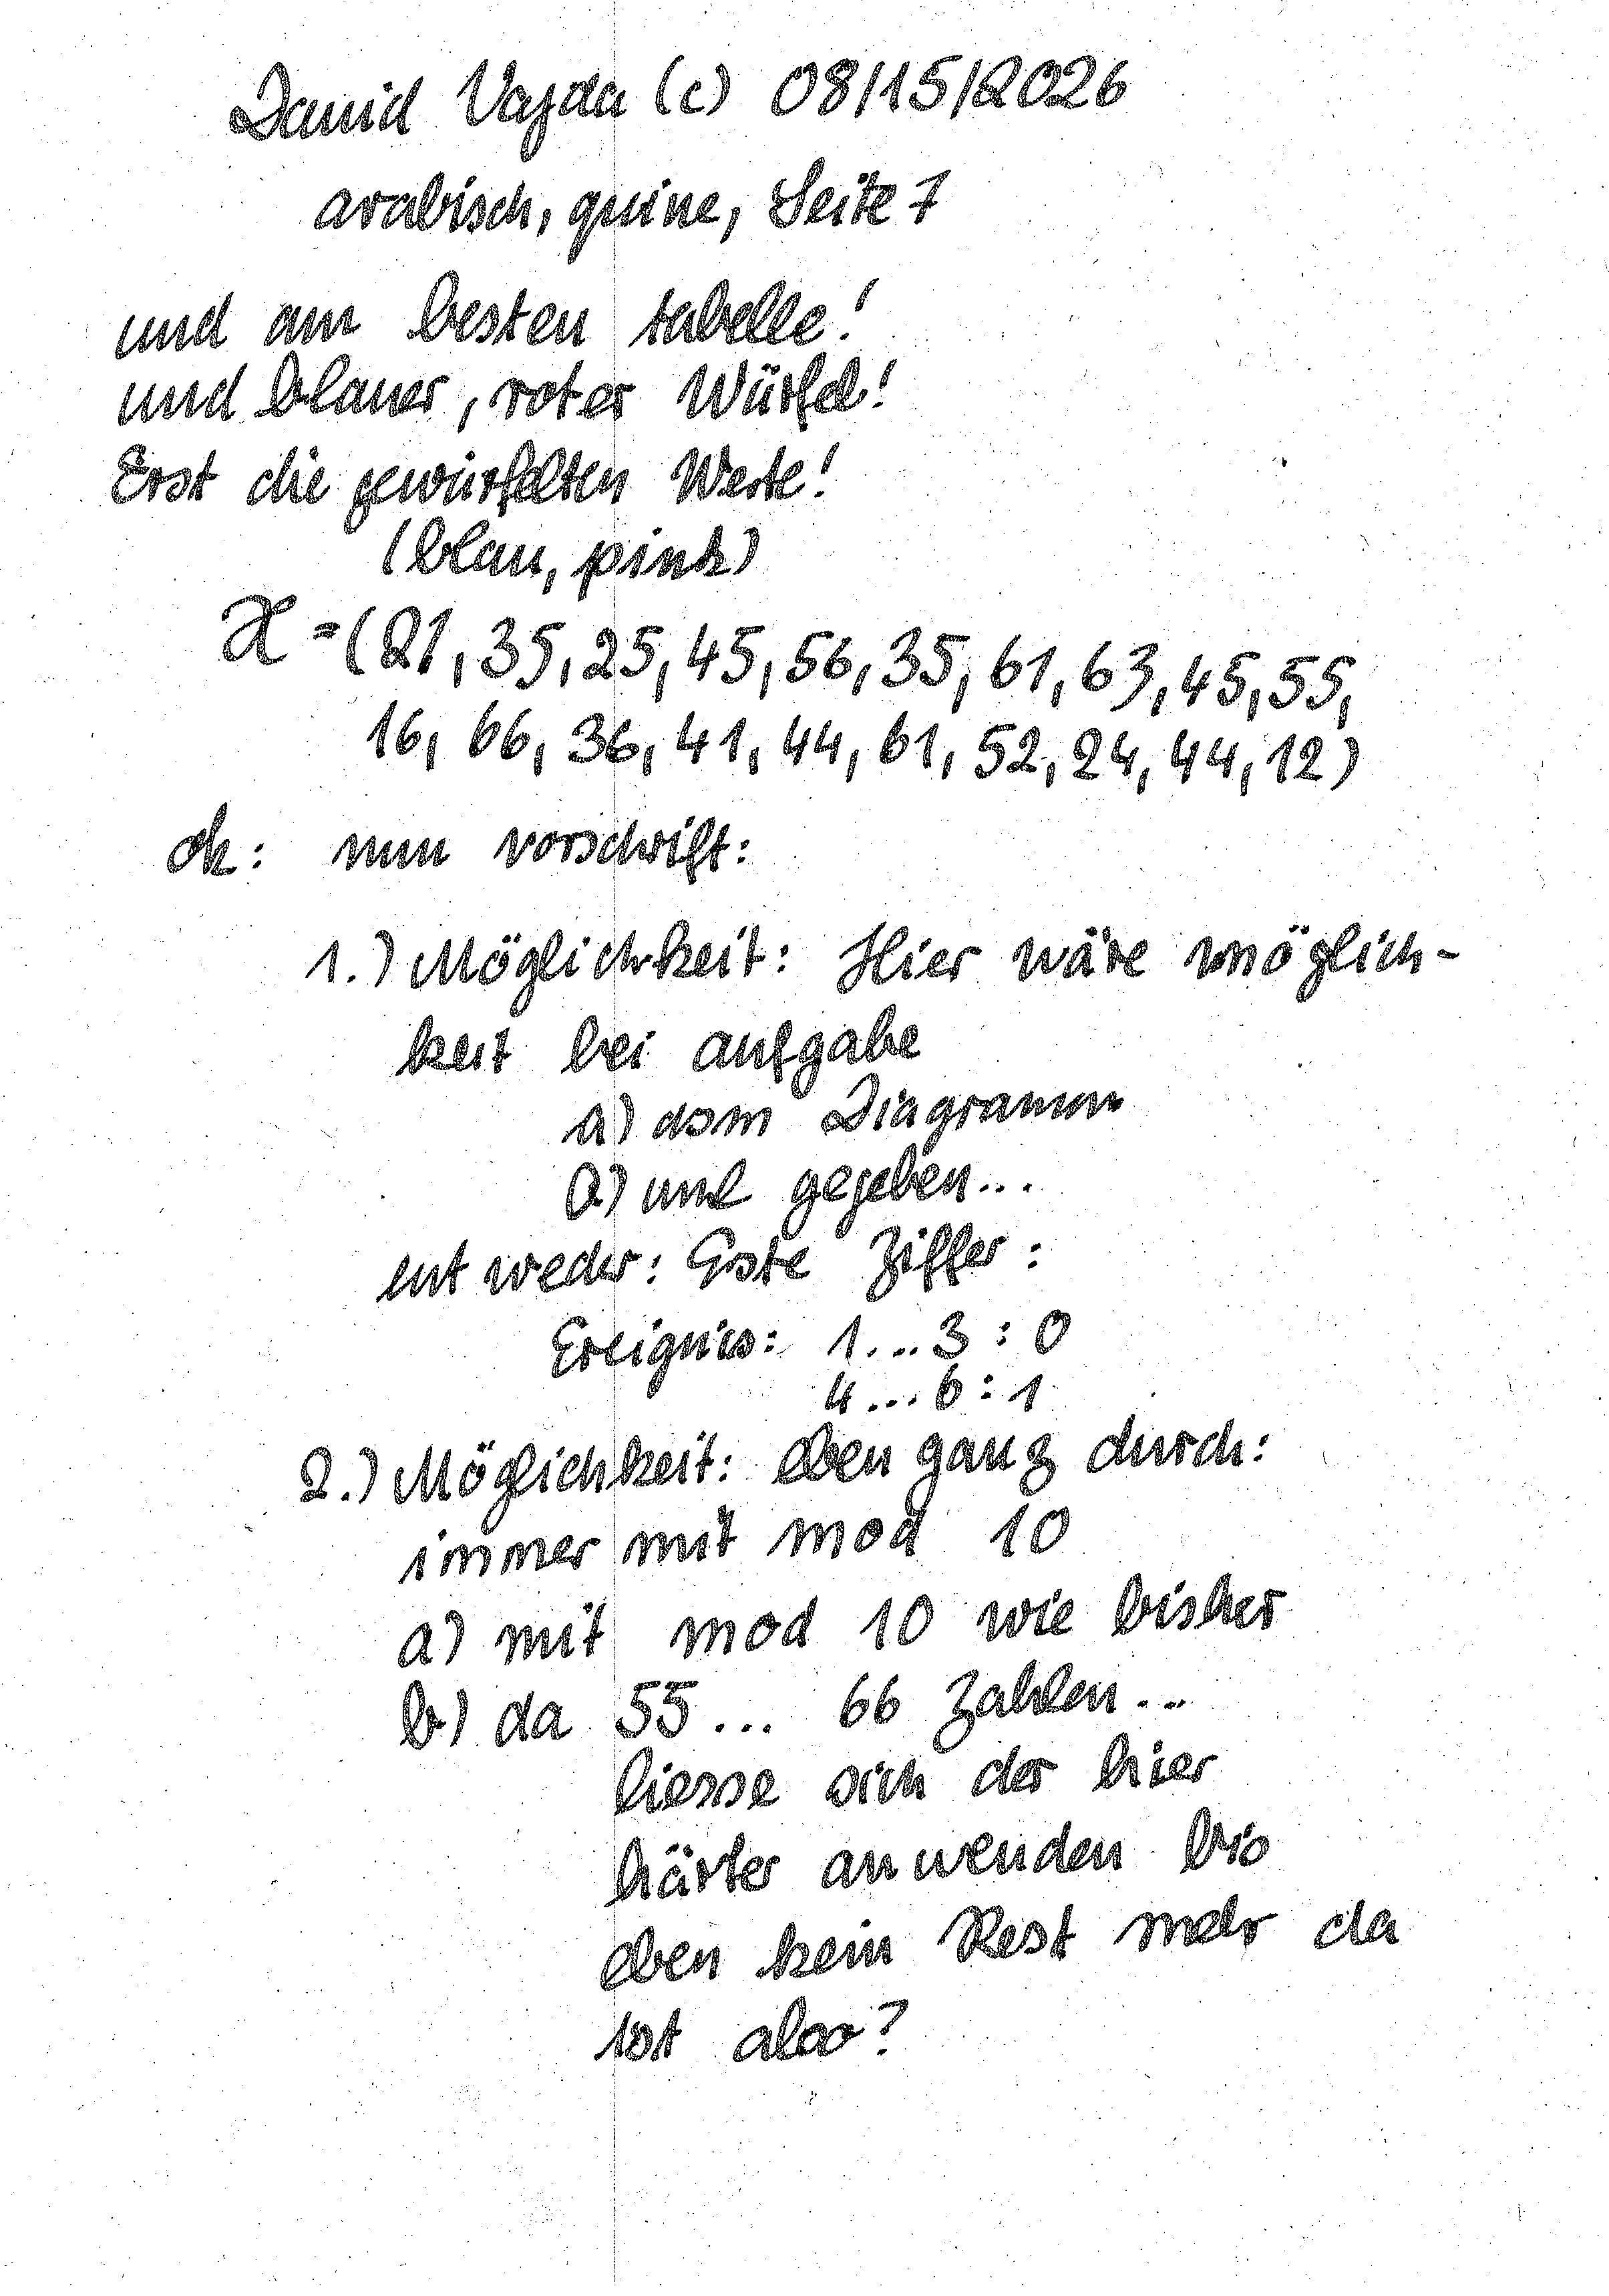 David Vajda (c) 08/15/2026
arabisch, quine, Seite 7
und am besten tabelle!
und blauer, roter Würfel!
Erst die gewürfelten Werte!
(blau, pink)
X = (21, 35, 25, 45, 56, 35, 61, 63, 45, 55,
16, 66, 36, 41, 44, 61, 52, 24, 44, 12)
ok: nun vorschrift:
1.) Möglichkeit: Hier wäre möglich-
keit bei aufgabe
a) dsm Diagramm
a) und gegeben...
entweder: Erste Ziffer:
Ereignis: 1...3 : 0
4...6 : 1
2.) Möglichkeit: eben ganz durch:
immer mit mod 10
a) mit mod 10 wie bisher
b) da 55... 66 Zahlen...
liesse sich der hier
härter anwenden bis
eben kein Rest mehr da
ist also?